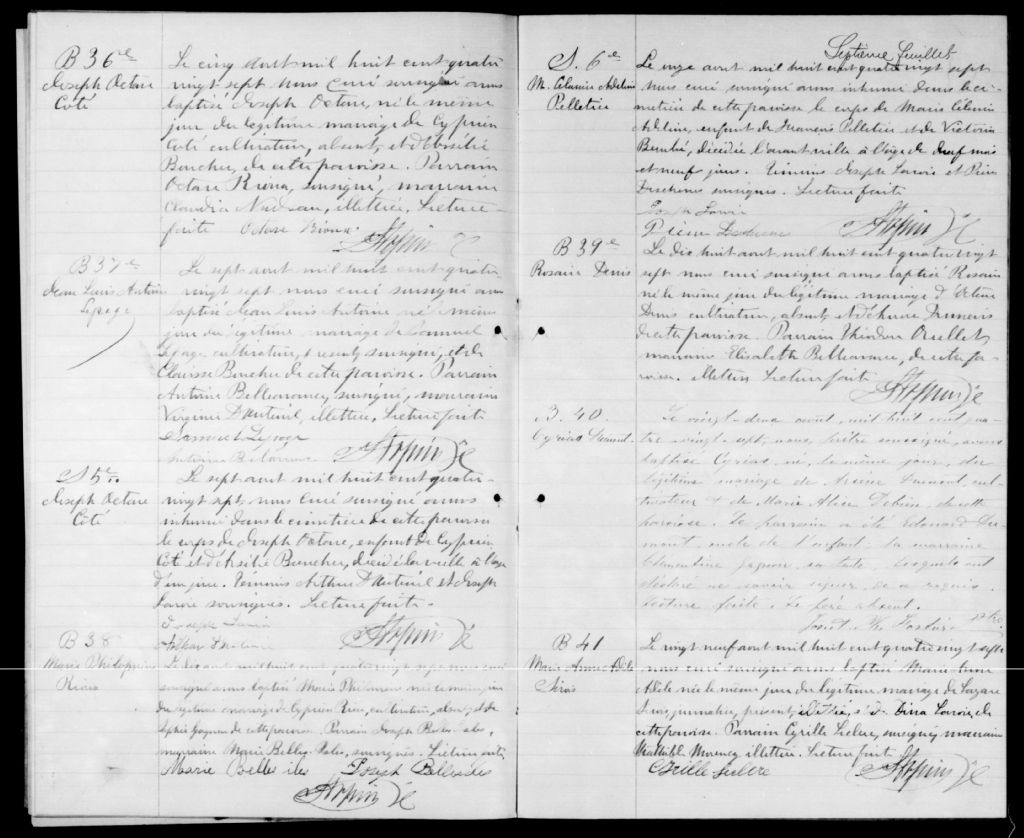 B 36e
Joseph Octave
Coté
Le cinq août mil huit cent quatre
vingt sept nous curé soussigné avons
baptisé Joseph Octave, né le même
jour du légitime mariage de Cyprien
Coté cultivateur, absent, et d'
Boucher, de cette paroisse. Parrain
Octave Rioux, soussigné, marraine
Claudia Nadeau, illettrée, Lecture
faite Octave Rioux
B 37e
Jean Louis Antoine
Lepage
Le sept août mil huit cent quatre
vingt sept nous curé soussigné avons
baptisé Jean Louis Antoine né même
jour du légitime mariage de Samuel
Lepage cultivateur, présent, soussigné, et de
Clarisse Boucher de cette paroisse. Parrain
Antoine Bellavance, soussigné, marraine
Virginie D'Auteuil, illettrée, Lecture faite
Samuel Lepage
Antoine Belavance
S 5e
Joseph Octave
Coté
Le sept août mil huit cent quatre-
vingt sept nous curé soussigné avons
inhumé dans le cimetière de cette paroisse
le corps de Joseph Octave, enfant de Cyprien
Coté et d' Boucher, décédé la veille à l'age
d'un jour. Témoins Arthur D'Auteuil et Joseph
Lavoie soussignés. Lecture faite.
Joseph Lavoie
B 38
Marie
Rioux
Le août mil huit cent quatre vingt sept nous curé
soussigné avons baptisé Marie née le même jour
du légitime mariage de Cyprien Rioux, cultivateur, absent, et de
Gagnon de cette paroisse. Parrain Joseph Belles-iles,
marraine Marie Belles-Isles, soussignés. Lecture faite
Marie Belles iles Joseph Bellesiles
Septième feuillet
S. 6e
M. Célanire Adeline
Pelletier
Le onze août mil huit cent quatre vingt sept
nous curé soussigné avons inhumé dans le ci-
metière de cette paroisse le corps de Marie
Adeline, enfant de François Pelletier et de Victoria
décédée l'avant veille à l'age de neuf mois
et neuf jours. Témoins Joseph Lavoie et Pierre
Duchesne soussignés. Lecture faite
Joseph Lavoie
Pierre
B 39e
Rosaire Denis
Le Dix huit août mil huit cent quatre vingt
sept nous curé soussigné avons baptisé Rosaire
né le même jour du légitime mariage d'Octave
Denis cultivateur, absent, et d'
de cette paroisse. Parrain Théodore Ouellet
marraine Elisabeth Bellavance, de cette pa-
roisse. illettrés Lecture faite
B. 40.
Cyrias Dumont.
Le vingt-deux août, mil huit cent qua-
tre-vingt-sept, nous, prêtre soussigné, avons
baptisé Cyrias né, le même jour, du
légitime mariage de Arsène Dumont, cul-
tivateur & de Marie Alice de cette
paroisse. Le parrain a été Edouard Du-
mont, oncle de l'enfant; la marraine
Clémentine Gagnon, sa tante, lesquels ont
déclaré ne savoir signer de ce requis.
Lecture faite. Le père absent.
Ptre
B 41
Marie Anne Adèle
Sirois
Le vingt neuf août mil huit cent quatre vingt sept
nous curé soussigné avons baptisé Marie Anne
Adèle née le même jour du légitime mariage de Lazare
Sirois, journalier, présent, et de Dina Lavoie, de
cette paroisse. Parrain Cyrille Leclerc, soussigné, marraine
Mathilde Morency illettrée. Lecture faite
Cyrille Leclerc